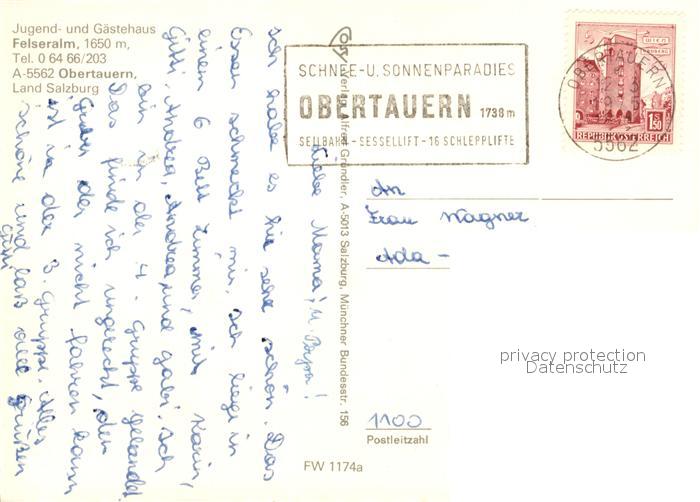 Jugend- und Gästehaus
Felseralm, 1650 m,
Tel. 0 64 66/203
A-5562 Obertauern,
Land Salzburg
Cosy-Verlag Alfred Gründler, A-5013 Salzburg, Münchner Bundesstr. 156
SCHNEE-U. SONNENPARADIES
OBERTAUERN 1738m
SEILBAHN - SESSELLIFT - 16 SCHLEPPLIFTE
OBERTAUERN
5562
WIEN
S 1.50
REPUBLIK ÖSTERREICH
Liebe Mama, u. Papa!
Ich habe es hie sehr schön. Das
Essen schmeckt mir, ich liege in
einem 6 Bett Zimmer, mit Karin,
Gitti, Andrea, Andrea und Gabi. Ich
bin in der 4. Gruppe gelandet
Das finde ich ungerecht, den
der nicht fahren kann
ist in der 3. Gruppe. Alles
schöne und laß alle Grüßen
Gitti
An
Frau Wagner
Ada-
1100
Postleitzahl
FW 1174a
privacy protection
Datenschutz